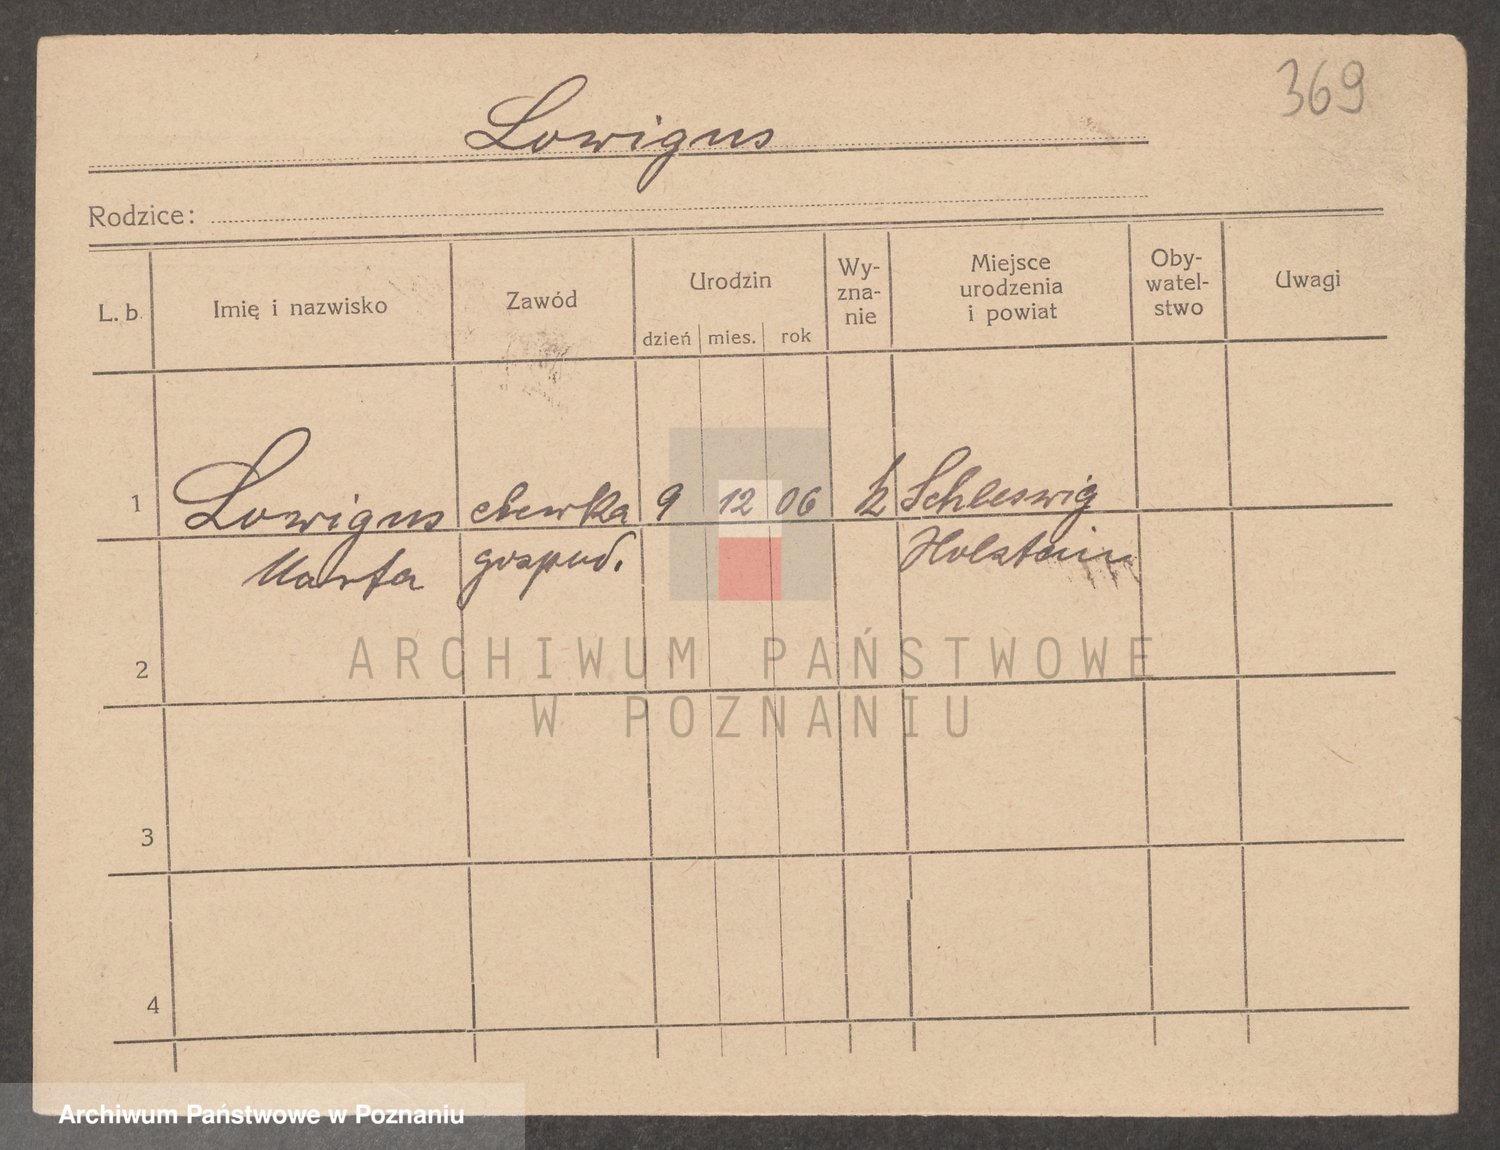 369
Lowigus
Rodzice:
L. b. Imię i nazwisko Zawód Urodzin Wy-
zna-
nie Miejsce
urodzenia
i powiat Oby-
watel-
stwo Uwagi
dzień mies. rok
1 Lowigus 9 12 06 Schleswig
Marta gospod. Holsztein
2
ARCHIWUM PAŃSTWOWE
W POZNANIU
3
4
Archiwum Państwowe w Poznaniu